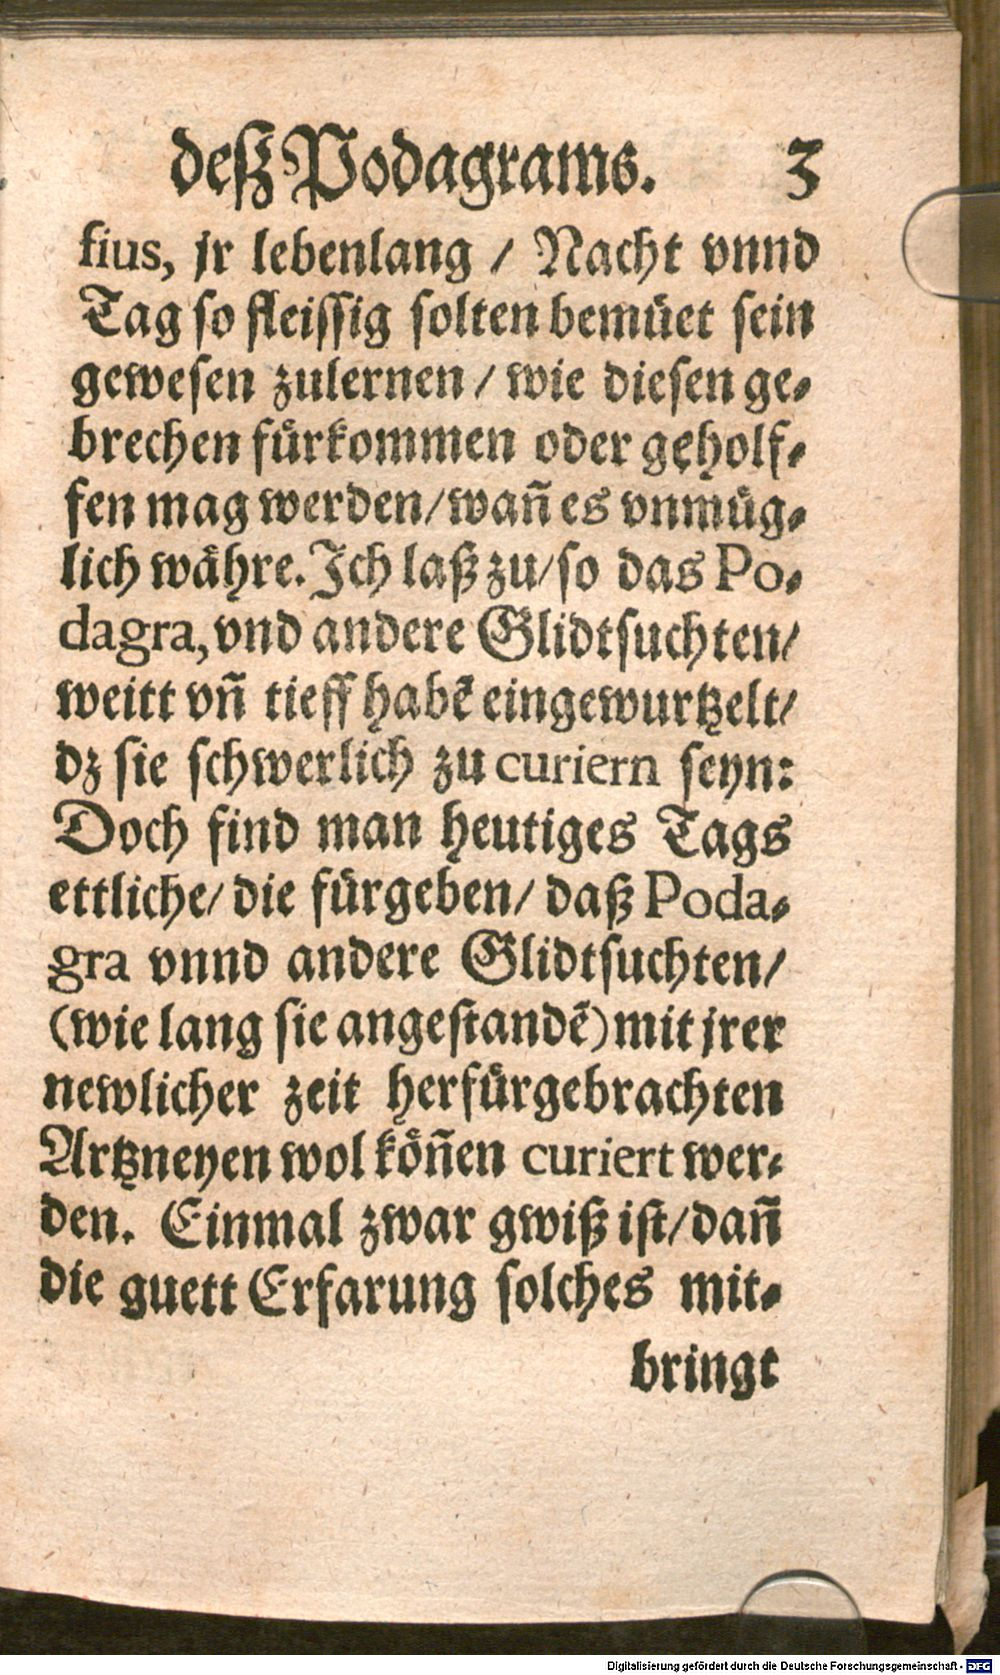 deß Podagrams. 3
ſius, jr lebenlang / Nacht vnnd
Tag ſo fleiſſig ſolten bemüet ſein
geweſen zulernen / wie dieſen ge-
brechen fürkommen oder geholf-
fen mag werden / wañ es vnmüg-
lich wåhre. Ich laß zu / ſo das Po-
dagra, vnd andere Glidtſuchten /
weitt vñ tieff habẽ eingewurtzelt /
dz ſie ſchwerlich zu curiern ſeyn:
Doch find man heutiges Tags
ettliche / die fürgeben / daß Poda-
gra vnnd andere Glidtſuchten /
(wie lang ſie angeſtandẽ) mit jrer
newlicher zeit herfürgebrachten
Artzneyen wol köñen curiert wer-
den. Einmal zwar gwiß iſt / dañ
die guett Erfarung ſolches mit-
bringt
Digitalisierung gefördert durch die Deutsche Forschungsgemeinschaft - DFG